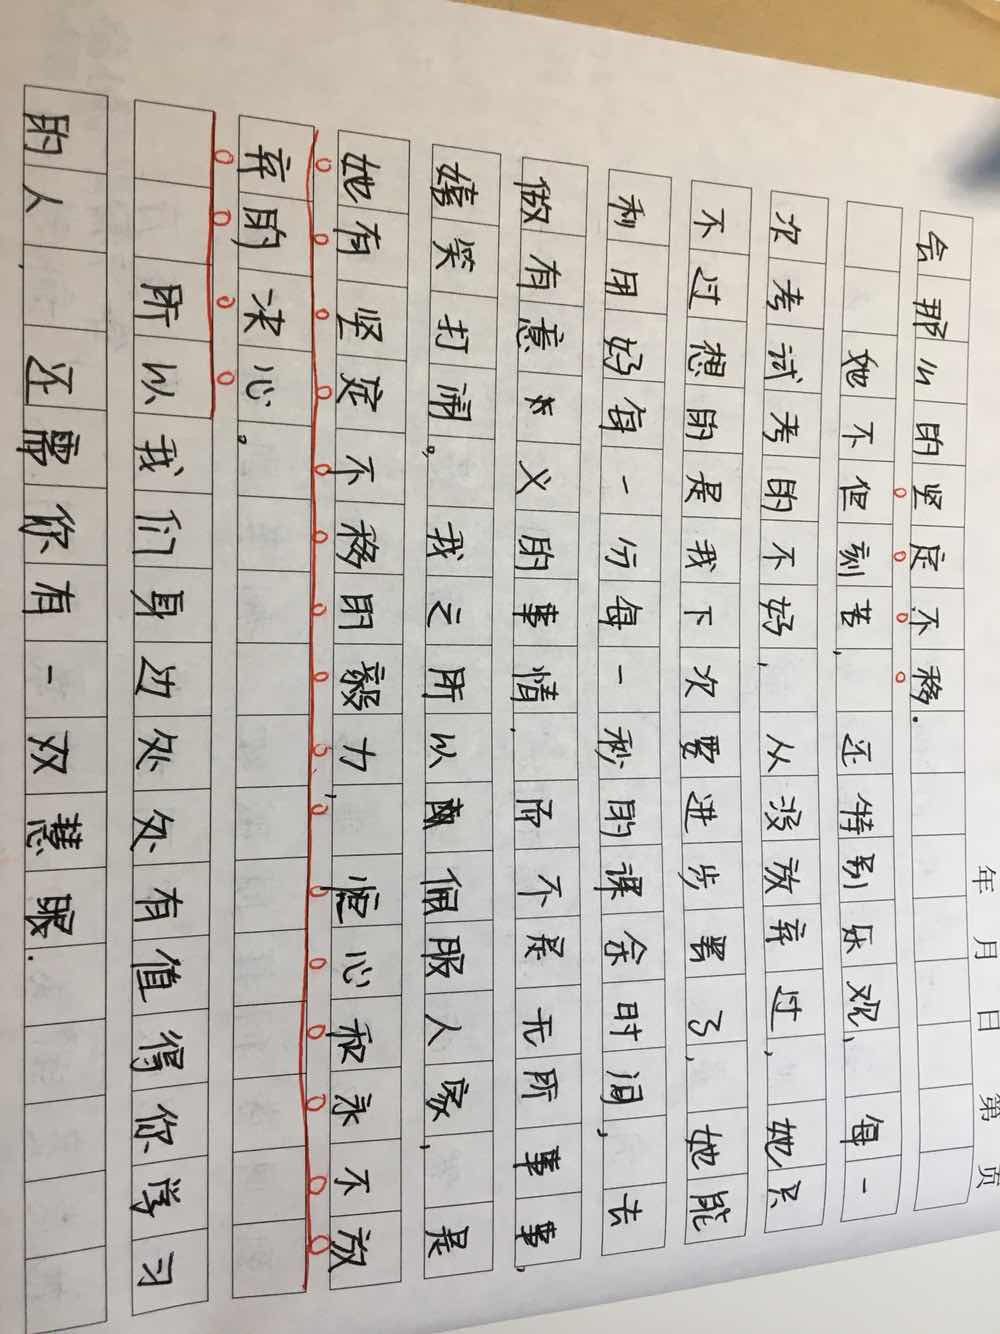 年 月 日 第 页
会那么的坚定不移.
她不但刻苦,还特别乐观,每一
次考试考的不好,从没放弃过,她只
不过想的是我下次要进步罢了,她能
利用好每一分每一秒的课余时间,去
做有意义的事情.而不是无所事事,
嬉笑打闹。我之所以佩服人家,是
她有坚定不移的毅力,恒心和永不放
弃的决心。
所以我们身边处处有值得你学习
的人.还需你有一双慧眼.